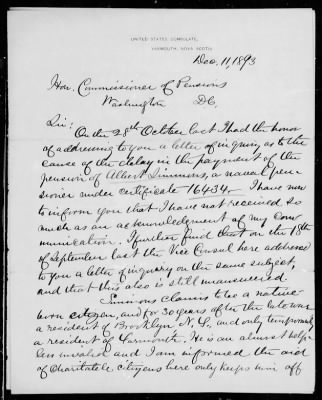 UNITED STATES CONSULATE,
YARMOUTH, NOVA SCOTIA
Dec. 11, 1893
Hon. Commissioner of Pensions
Washington DC.
Sir:
On the 28th October last I had the honor
of addressing to you a letter of inquiry as to the
cause of the delay in the payment of the
pension of Albert Simmons, a naval pen-
sioner under certificate 16434. I have now
to inform you that I have not received so
much as an acknowledgment of my com
munication. I further find that on the 18th
of September last the Vice Consul here addressed
to you a letter of inquiry on the same subject,
and that this also is still unanswered.
Simmons claims to be a native
born citizen, and for 30 years after the late war
a resident of Brooklyn N.Y., and only temporarily
a resident of Yarmouth. He is an almost help-
less invalid and I am informed the aid
of charitable citizens here only keeps him off